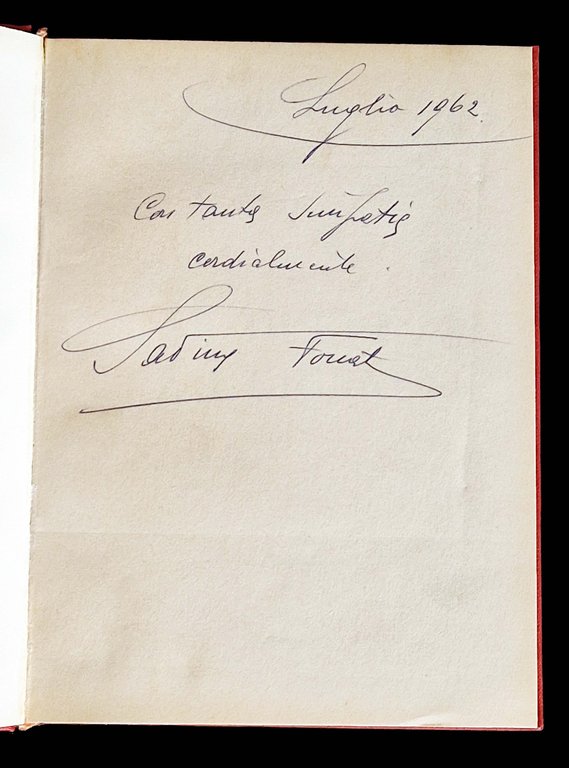 Luglio 1962.
Con tanta simpatia
cordialmente.
Sabina Fonat